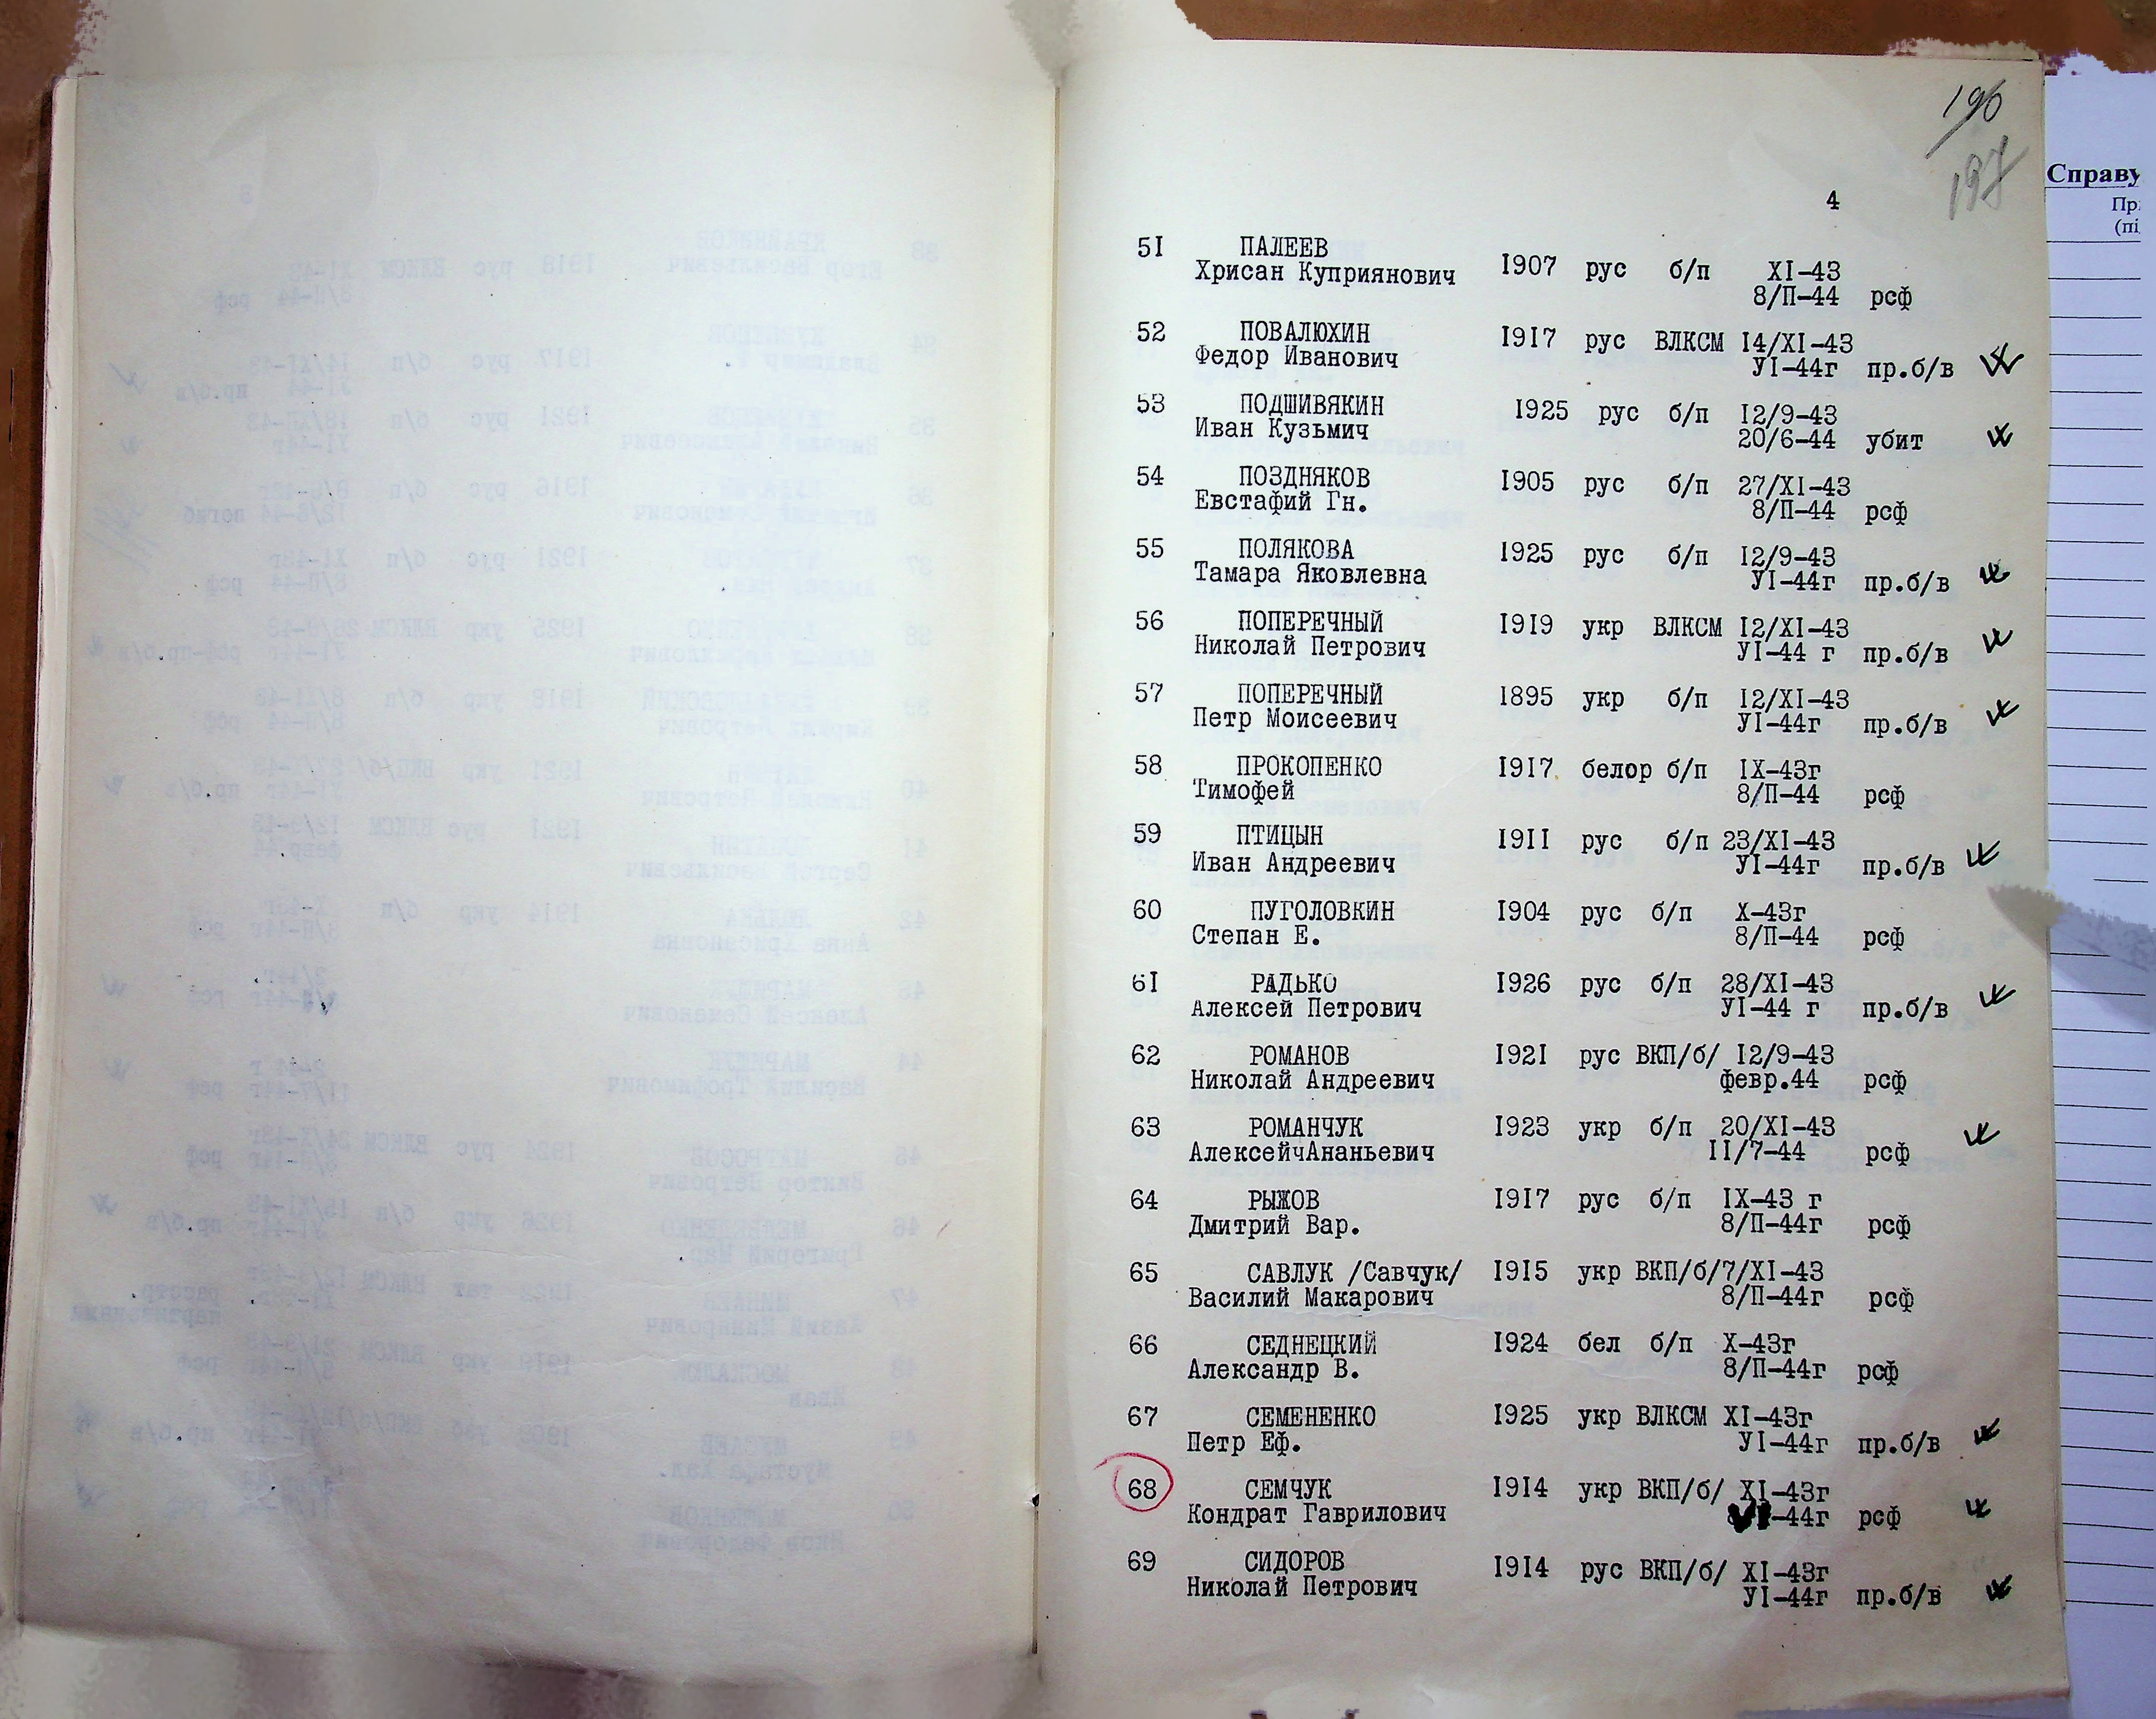 196
197
Справу
Пр
(пі
4
51 ПАЛЕЕВ
Хрисан Куприянович 1907 рус б/п XI-43
8/П-44 рсф
52 ПОВАЛЮХИН 1917 рус ВЛКСМ 14/XI-43
Федор Иванович УI-44г пр.б/в
53 ПОДШИВЯКИН 1925 рус б/п 12/9-43
Иван Кузьмич 20/6-44 убит
54 ПОЗДНЯКОВ 1905 рус б/п 27/XI-43
Евстафий Гн. 8/П-44 рсф
55 ПОЛЯКОВА 1925 рус б/п 12/9-43
Тамара Яковлевна УI-44г пр.б/в
56 ПОПЕРЕЧНЫЙ 1919 укр ВЛКСМ 12/XI-43
Николай Петрович УI-44 г пр.б/в
57 ПОПЕРЕЧНЫЙ 1895 укр б/п 12/XI-43
Петр Моисеевич УI-44г пр.б/в
58 ПРОКОПЕНКО 1917 белор б/п IX-43г
Тимофей 8/П-44 рсф
59 ПТИЦЫН 1911 рус б/п 23/XI-43
Иван Андреевич УI-44г пр.б/в
60 ПУГОЛОВКИН 1904 рус б/п X-43г
Степан Е. 8/П-44 рсф
61 РАДЬКО 1926 рус б/п 28/XI-43
Алексей Петрович УI-44 г пр.б/в
62 РОМАНОВ 1921 рус ВКП/б/ 12/9-43
Николай Андреевич февр.44 рсф
63 РОМАНЧУК 1923 укр б/п 20/XI-43
АлексейчАнаньевич 11/7-44 рсф
64 РЫЖОВ 1917 рус б/п IX-43 г
Дмитрий Вар. 8/П-44г рсф
65 САВЛУК /Савчук/ 1915 укр ВКП/б/7/XI-43
Василий Макарович 8/П-44г рсф
66 СЕДНЕЦКИЙ 1924 бел б/п X-43г
Александр В. 8/П-44г рсф
67 СЕМЕНЕНКО 1925 укр ВЛКСМ XI-43г
Петр Еф. УI-44г пр.б/в
68 СЕМЧУК 1914 укр ВКП/б/ XI-43г
Кондрат Гаврилович -44г рсф
69 СИДОРОВ 1914 рус ВКП/б/ XI-43г
Николай Петрович УI-44г пр.б/в